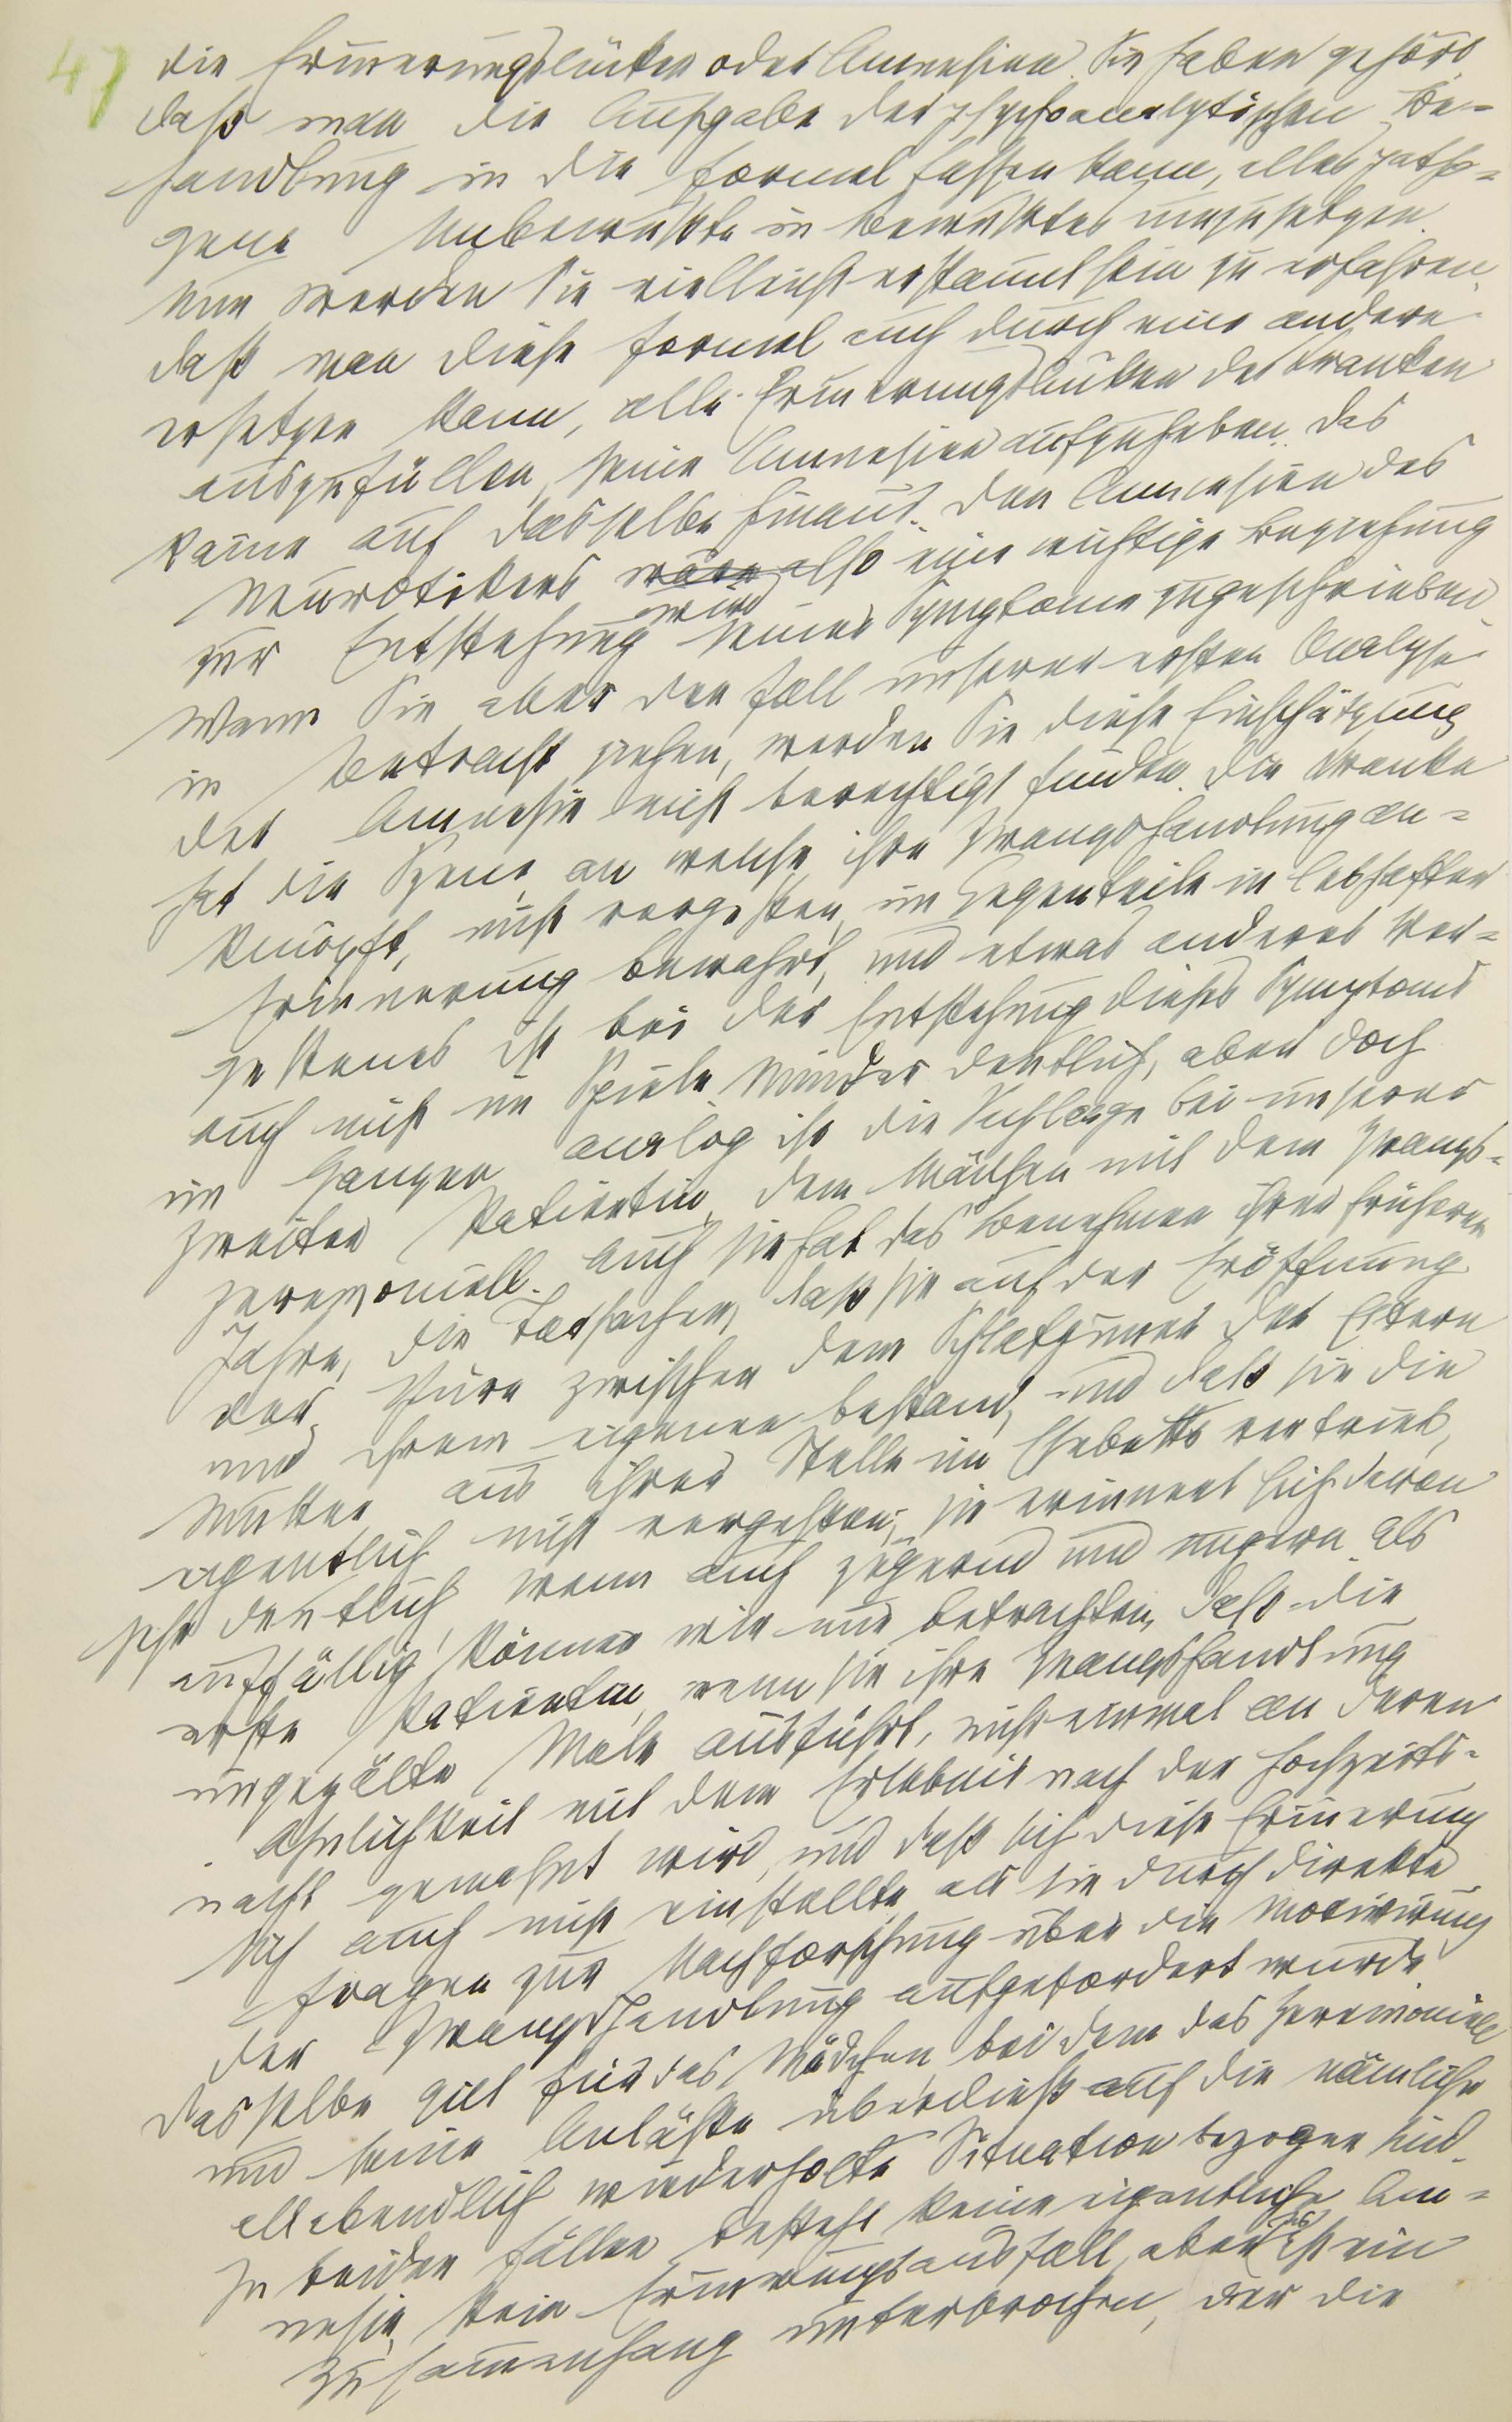 47
die Erinnerungslücken oder Amnesien. Sie haben gehört,
daß man die Aufgabe der psychoanalytischen Be-
handlung in die Formel fassen kann, alles patho-
gene Unbewußte in Bewußtes umzusetzen.
Nun werden Sie vielleicht erstaunt sein zu erfahren,
daß man diese Formel auch durch eine andere
ersetzen kann, alle Erinnerungslücken des Kranken
auszufüllen, seine Amnesien aufzuheben. Das
käme auf dasselbe hinaus. Den Amnesien des
Neurotikers wäre also eine wichtige Beziehung
wird
zur Entstehung seiner Symptome zugeschrieben
Wenn Sie aber den Fall unserer ersten Analyse
in Betracht ziehen, werden Sie diese Einschätzung
der Amnesie nicht berechtigt finden. Die Kranke
hat die Szene, an welche ihre Zwangshandlung an-
knüpft, nicht vergessen, im Gegenteile in lebhafter
Erinnerung bewahrt, und etwas anderes Ver-
gessenes ist bei der Entstehung dieses Symptoms
auch nicht im Spiele. Minder deutlich, aber doch
im Ganzen analog ist die Sachlage bei unserer
zweiten Patientin, dem Mädchen mit dem Zwangs-
zeremoniell. Auch sie hat das Benehmen ihrer früheren
Jahre, die Tatsachen, daß sie auf der Eröffnung
der Türe zwischen dem Schlafzimmer der Eltern
und ihrem eigenen bestand, und daß sie die
Mutter aus ihrer Stelle im Ehebette vertrieb,
eigentlich nicht vergessen; sie erinnert sich daran
sehr deutlich, wenn auch zögernd und ungern. Als
auffällig können wir nur betrachten, daß die
erste Patientin, wenn sie ihre Zwangshandlung
ungezälte Male ausführt, nicht einmal an deren
Ähnlichkeit mit dem Erlebnis nach der Hochzeits-
nacht gemahnt wird, und daß sich diese Erinerung
sich auch nicht einstellte, als sie durch direkte
Fragen zur Nachforschung über die Motivirung
der Zwangshandlung aufgefordert wurde
Dasselbe gilt für das Mädchen, bei dem das Zeremoniell
und seine Anläße überdieß auf die nämliche
allabendlich wiederholte Situation bezogen sind.
In beiden Fällen besteht keine eigentliche Am-
nesie, kein Erinerungsausfall, aber es ist ein
Zusammenhang unterbrochen, der die